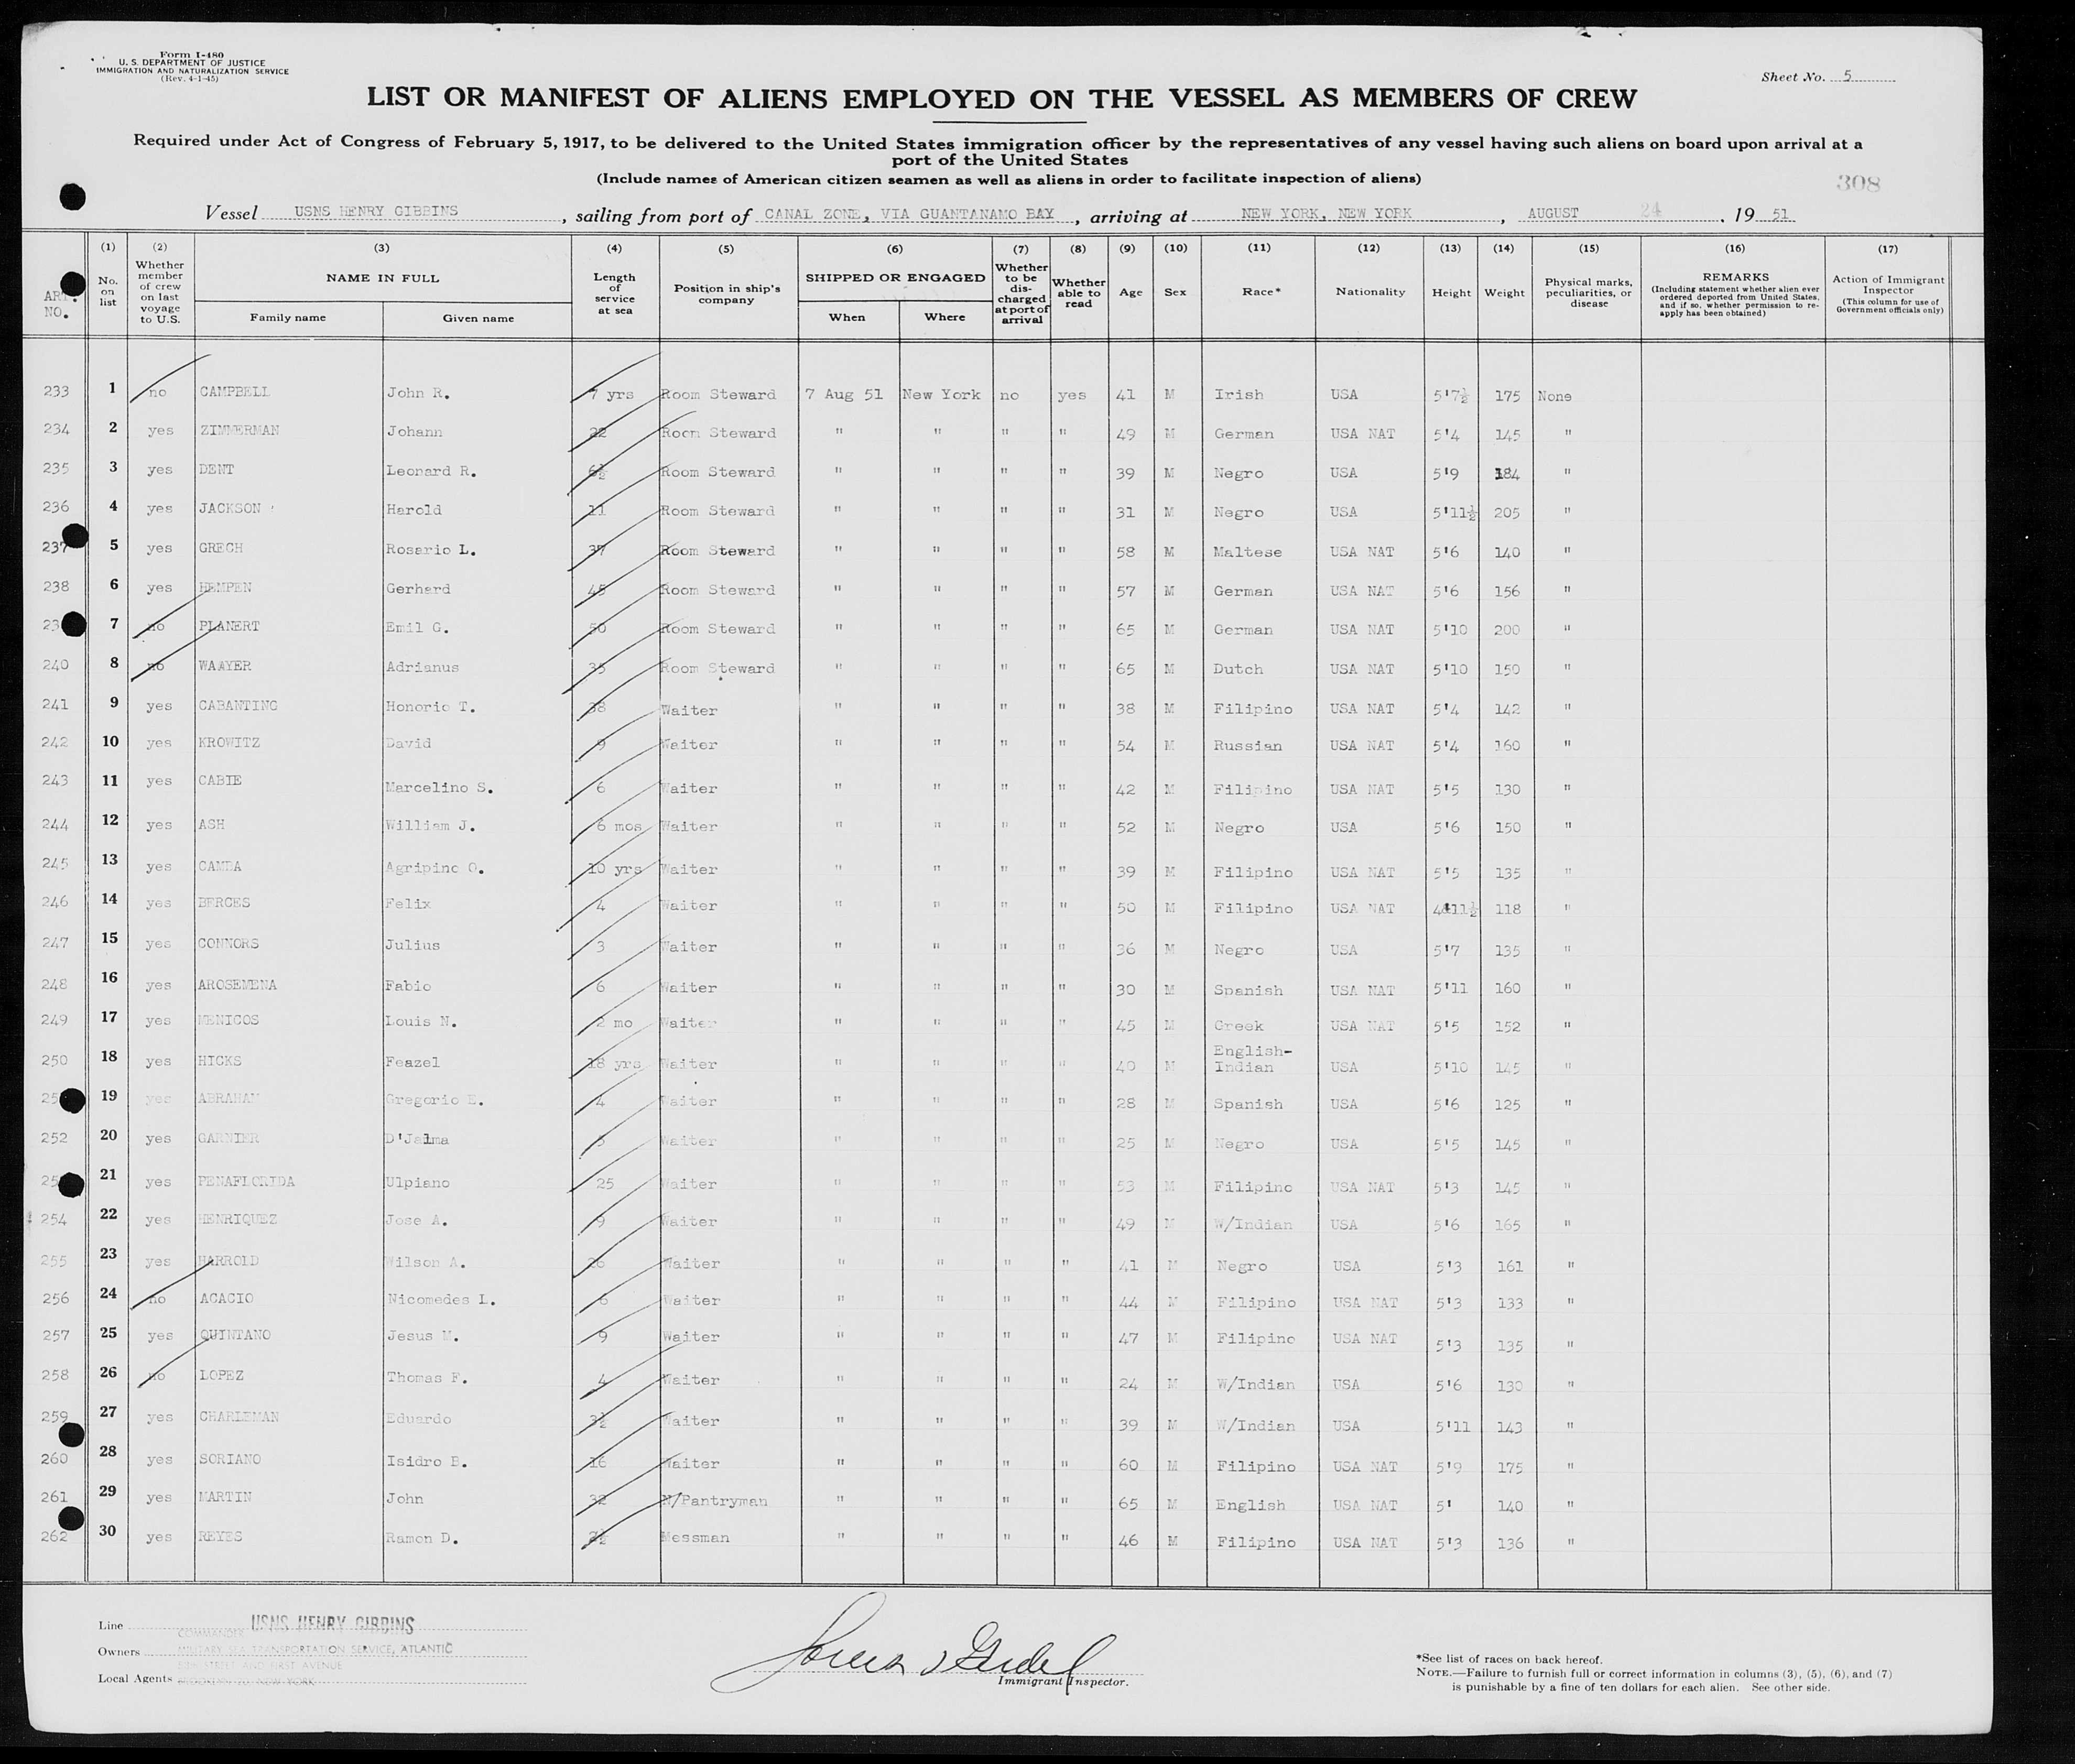 Form I-480
U. S. DEPARTMENT OF JUSTICE
IMMIGRATION AND NATURALIZATION SERVICE
(Rev. 4-1-45)
Sheet No. 5
LIST OR MANIFEST OF ALIENS EMPLOYED ON THE VESSEL AS MEMBERS OF CREW
Required under Act of Congress of February 5, 1917, to be delivered to the United States immigration officer by the representatives of any vessel having such aliens on board upon arrival at a
port of the United States
(Include names of American citizen seamen as well as aliens in order to facilitate inspection of aliens)
308
Vessel USNS HENRY GIBBINS, sailing from port of CANAL ZONE, VIA GUANTANAMO BAY, arriving at NEW YORK, NEW YORK, AUGUST 24, 19 51
(1) (2) (3) (4) (5) (6) (7) (8) (9) (10) (11) (12) (13) (14) (15) (16) (17)
ART. NO.
No. on list
Whether member of crew on last voyage to U.S.
NAME IN FULL
Family name
Given name
Length of service at sea
Position in ship's company
SHIPPED OR ENGAGED
When
Where
Whether to be discharged at port of arrival
Whether able to read
Age
Sex
Race*
Nationality
Height
Weight
Physical marks, peculiarities, or disease
REMARKS
(Including statement whether alien ever ordered deported from United States, and if so, whether permission to re-apply has been obtained)
Action of Immigrant Inspector
(This column for use of Government officials only)
233 1 no CAMPBELL John R. 7 yrs Room Steward 7 Aug 51 New York no yes 41 M Irish USA 5'7½ 175 None
234 2 yes ZIMMERMAN Johann 22 Room Steward " " " " 49 M German USA NAT 5'4 145 "
235 3 yes DENT Leonard R. 6½ Room Steward " " " " 39 M Negro USA 5'9 184 "
236 4 yes JACKSON Harold 11 Room Steward " " " " 31 M Negro USA 5'11½ 205 "
237 5 yes GRECH Rosario L. 37 Room Steward " " " " 58 M Maltese USA NAT 5'6 140 "
238 6 yes HEMPEN Gerhard 45 Room Steward " " " " 57 M German USA NAT 5'6 156 "
23 7 no PLANERT Emil G. 50 Room Steward " " " " 65 M German USA NAT 5'10 200 "
240 8 no WAAYER Adrianus 35 Room Steward " " " " 65 M Dutch USA NAT 5'10 150 "
241 9 yes CABANTING Honorio T. 38 Waiter " " " " 38 M Filipino USA NAT 5'4 142 "
242 10 yes KROWITZ David 9 Waiter " " " " 54 M Russian USA NAT 5'4 160 "
243 11 yes CABIE Marcelino S. 6 Waiter " " " " 42 M Filipino USA NAT 5'5 130 "
244 12 yes ASH William J. 6 mos Waiter " " " " 52 M Negro USA 5'6 150 "
245 13 yes CAMBA Agripino O. 10 yrs Waiter " " " " 39 M Filipino USA NAT 5'5 135 "
246 14 yes BERGES Felix 4 Waiter " " " " 50 M Filipino USA NAT 4'11½ 118 "
247 15 yes CONNORS Julius 3 Waiter " " " " 36 M Negro USA 5'7 135 "
248 16 yes AROSEMENA Fabio 6 Waiter " " " " 30 M Spanish USA NAT 5'11 160 "
249 17 yes MENICOS Louis N. 2 mo Waiter " " " " 45 M Greek USA NAT 5'5 152 "
250 18 yes HICKS Feazel 18 yrs Waiter " " " " 40 M English-Indian USA 5'10 145 "
25 19 yes ABRAHAM Gregorio E. 4 Waiter " " " " 28 M Spanish USA 5'6 125 "
252 20 yes GARNIER D'Jalma 5 Waiter " " " " 25 M Negro USA 5'5 145 "
25 21 yes PENAFLORIDA Ulpiano 25 Waiter " " " " 53 M Filipino USA NAT 5'3 145 "
254 22 yes HENRIQUEZ Jose A. 9 Waiter " " " " 49 M W/Indian USA 5'6 165 "
255 23 yes HARROLD Wilson A. 26 Waiter " " " " 41 M Negro USA 5'3 161 "
256 24 no ACACIO Nicomedes L. 6 Waiter " " " " 44 M Filipino USA NAT 5'3 133 "
257 25 yes QUINTANO Jesus M. 9 Waiter " " " " 47 M Filipino USA NAT 5'3 135 "
258 26 no LOPEZ Thomas F. 4 Waiter " " " " 24 M W/Indian USA 5'6 130 "
259 27 yes CHARLEMAN Eduardo 3½ Waiter " " " " 39 M W/Indian USA 5'11 143 "
260 28 yes SORIANO Isidro B. 16 Waiter " " " " 60 M Filipino USA NAT 5'9 175 "
261 29 yes MARTIN John 32 N/Pantryman " " " " 65 M English USA NAT 5' 140 "
262 30 yes REYES Ramon D. Messman " " " " 46 M Filipino USA NAT 5'3 136 "
Line USNS HENRY GIBBINS
COMMANDER
Owners MILITARY SEA TRANSPORTATION SERVICE, ATLANTIC
58TH STREET AND FIRST AVENUE
Local Agents BROOKLYN 20, NEW YORK
Immigrant Inspector.
*See list of races on back hereof.
NOTE.—Failure to furnish full or correct information in columns (3), (5), (6), and (7)
is punishable by a fine of ten dollars for each alien. See other side.